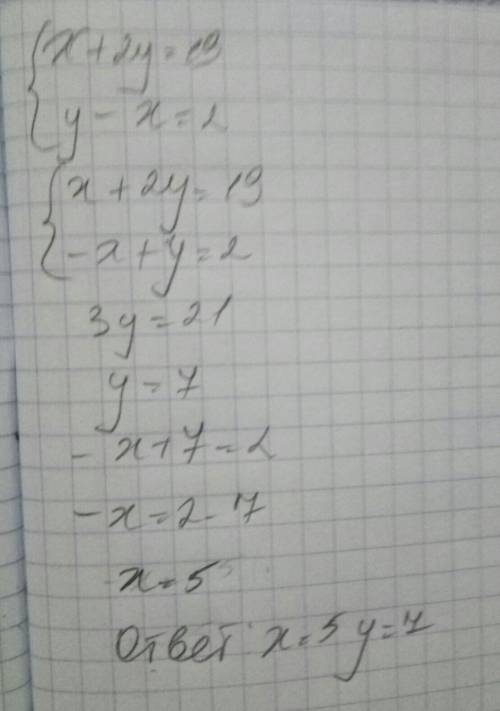 x + 2y = 19
y - x = 2
x + 2y = 19
-x + y = 2
3y = 21
y = 7
-x + 7 = 2
-x = 2 - 7
x = 5
Ответ x = 5 y = 7